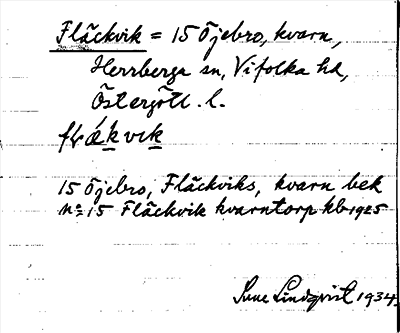 Fläckvik = 15 Öjebro, kvarn,
Herrberga sn, Vifolka hd,
Östergötl. l.
flǽkvɩk
15 Öjebro, Fläckviks, kvarn bek
No=15 Fläckvik kvarntorp kb 1925
Sune Lindqvist 1934.